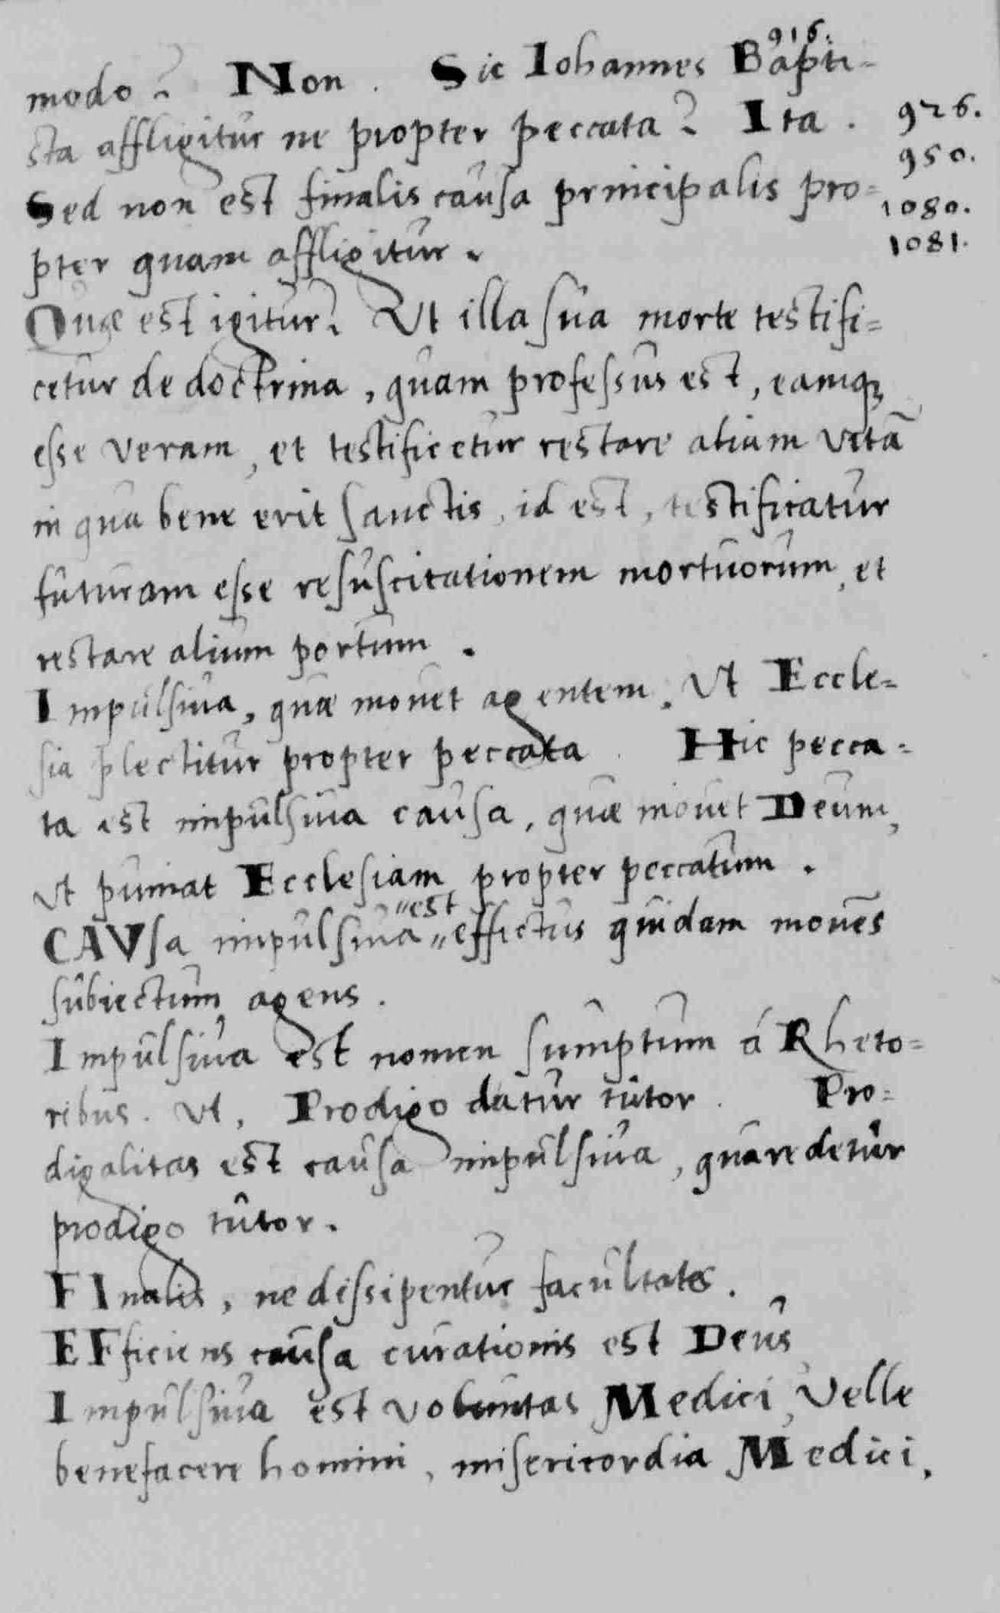 916.
modo? Non. Sic Iohannes Bapti-
sta affligitur ne propter peccata? Ita. 926.
950.
Sed non est finalis causa principalis pro= 1080.
pter quam affligitur. 1081.
Quæ est igitur? Ut illa sua morte testifi=
cetur de doctrina, quam professus est, eamq;
esse veram, et testificetur restare aliam vitā
in qua bene erit sanctis, id est, testificatur
futuram esse resuscitationem mortuorum, et
restare alium portum.
Impulsiua, quæ mouet agentem. Ut Eccle=
sia plectitur propter peccata. Hic pecca=
ta est impulsiua causa, quæ mouet Deum,
ut puniat Ecclesiam propter peccatum.
"est
CAVsa impulsiua " effectus quidam mouēs
subiectum agens.
Impulsiua est nomen sumptum á Rheto=
ribus. Ut, Prodigo datur tutor. Pro=
digalitas est causa impulsiua, quare detur
prodigo tutor.
FInalis, ne dissipentur facultates.
EFficiens causa curationis est Deus,
Impulsiua est voluntas Medici, velle
benefacere homini, misericordia Medici,